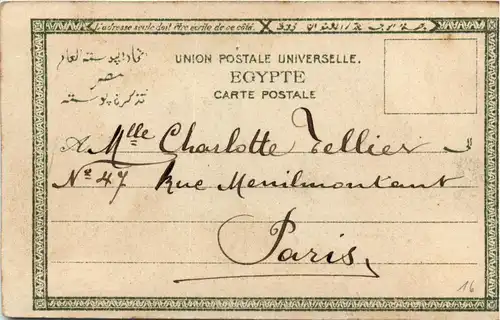 L'adresse seule doit être écrite de ce côté.
UNION POSTALE UNIVERSELLE.
EGYPTE
CARTE POSTALE
مصر
تذكرة بوسته
A Mlle Charlotte Tellier
Nº 47 Rue Menilmontant
Paris
16